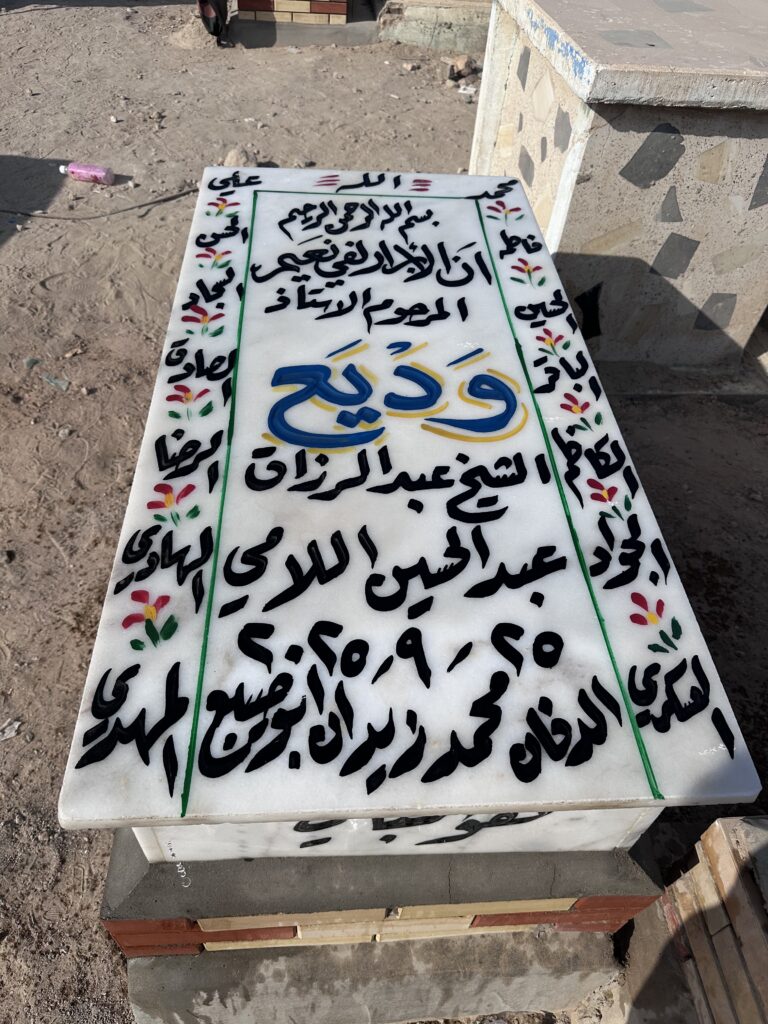 محمد الله علي
بسم الله الرحمن الرحيم
ان الأبرار لفي نعيم
المرحوم الاستاذ
وديع
الشيخ عبد الرزاق
عبد الحسين اللامي
٢٥-٩-٢٠٢٥
الدفان محمد زيدان ابو صيبع
فاطمه
الحسين
الباقر
الكاظم
الجواد
العسكري
الحسن
السجاد
الصادق
الرضا
الهادي
المهدي
هو الباقي